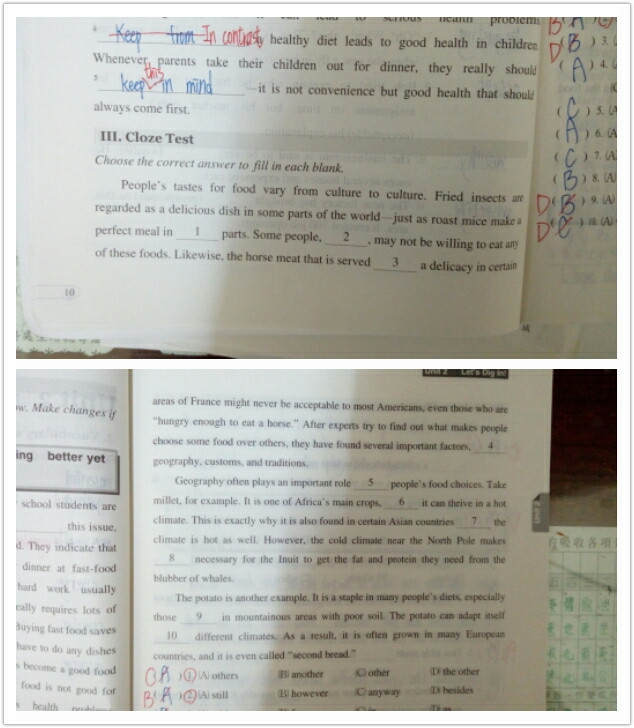 lead to serious health problem
4 Keep from In contrast, healthy diet leads to good health in children
Whenever parents take their children out for dinner, they really should
5 keep this in mind —it is not convenience but good health that should
always come first.
III. Cloze Test
Choose the correct answer to fill in each blank.
People's tastes for food vary from culture to culture. Fried insects are
regarded as a delicious dish in some parts of the world—just as roast mice make a
perfect meal in 1 parts. Some people, 2 , may not be willing to eat any
of these foods. Likewise, the horse meat that is served 3 a delicacy in certain
10
D (B) 3. (
(A) 4. (
(C) 5. (A
(A) 6. (A
(C) 7. (A)
(B) 8. (A)
D (B) 9. (A)
D (C) 10. (A)
Unit 2 Let's Dig In!
areas of France might never be acceptable to most Americans, even those who are
"hungry enough to eat a horse." After experts try to find out what makes people
choose some food over others, they have found several important factors, 4
geography, customs, and traditions.
Geography often plays an important role 5 people's food choices. Take
millet, for example. It is one of Africa's main crops, 6 it can thrive in a hot
climate. This is exactly why it is also found in certain Asian countries 7 the
climate is hot as well. However, the cold climate near the North Pole makes
8 necessary for the Inuit to get the fat and protein they need from the
blubber of whales.
The potato is another example. It is a staple in many people's diets, especially
those 9 in mountainous areas with poor soil. The potato can adapt itself
10 different climates. As a result, it is often grown in many European
countries, and it is even called "second bread."
C (A) 1 (A) others (B) another (C) other (D) the other
B (A) 2 (A) still (B) however (C) anyway (D) besides
w. Make changes if
ing better yet
school students are
this issue.
d. They indicate that
dinner at fast-food
hard work usually
eally requires lots of
Buying fast food saves
have to do any dishes
s become a good food
food is not good for
health
Unit 2
吸收各項